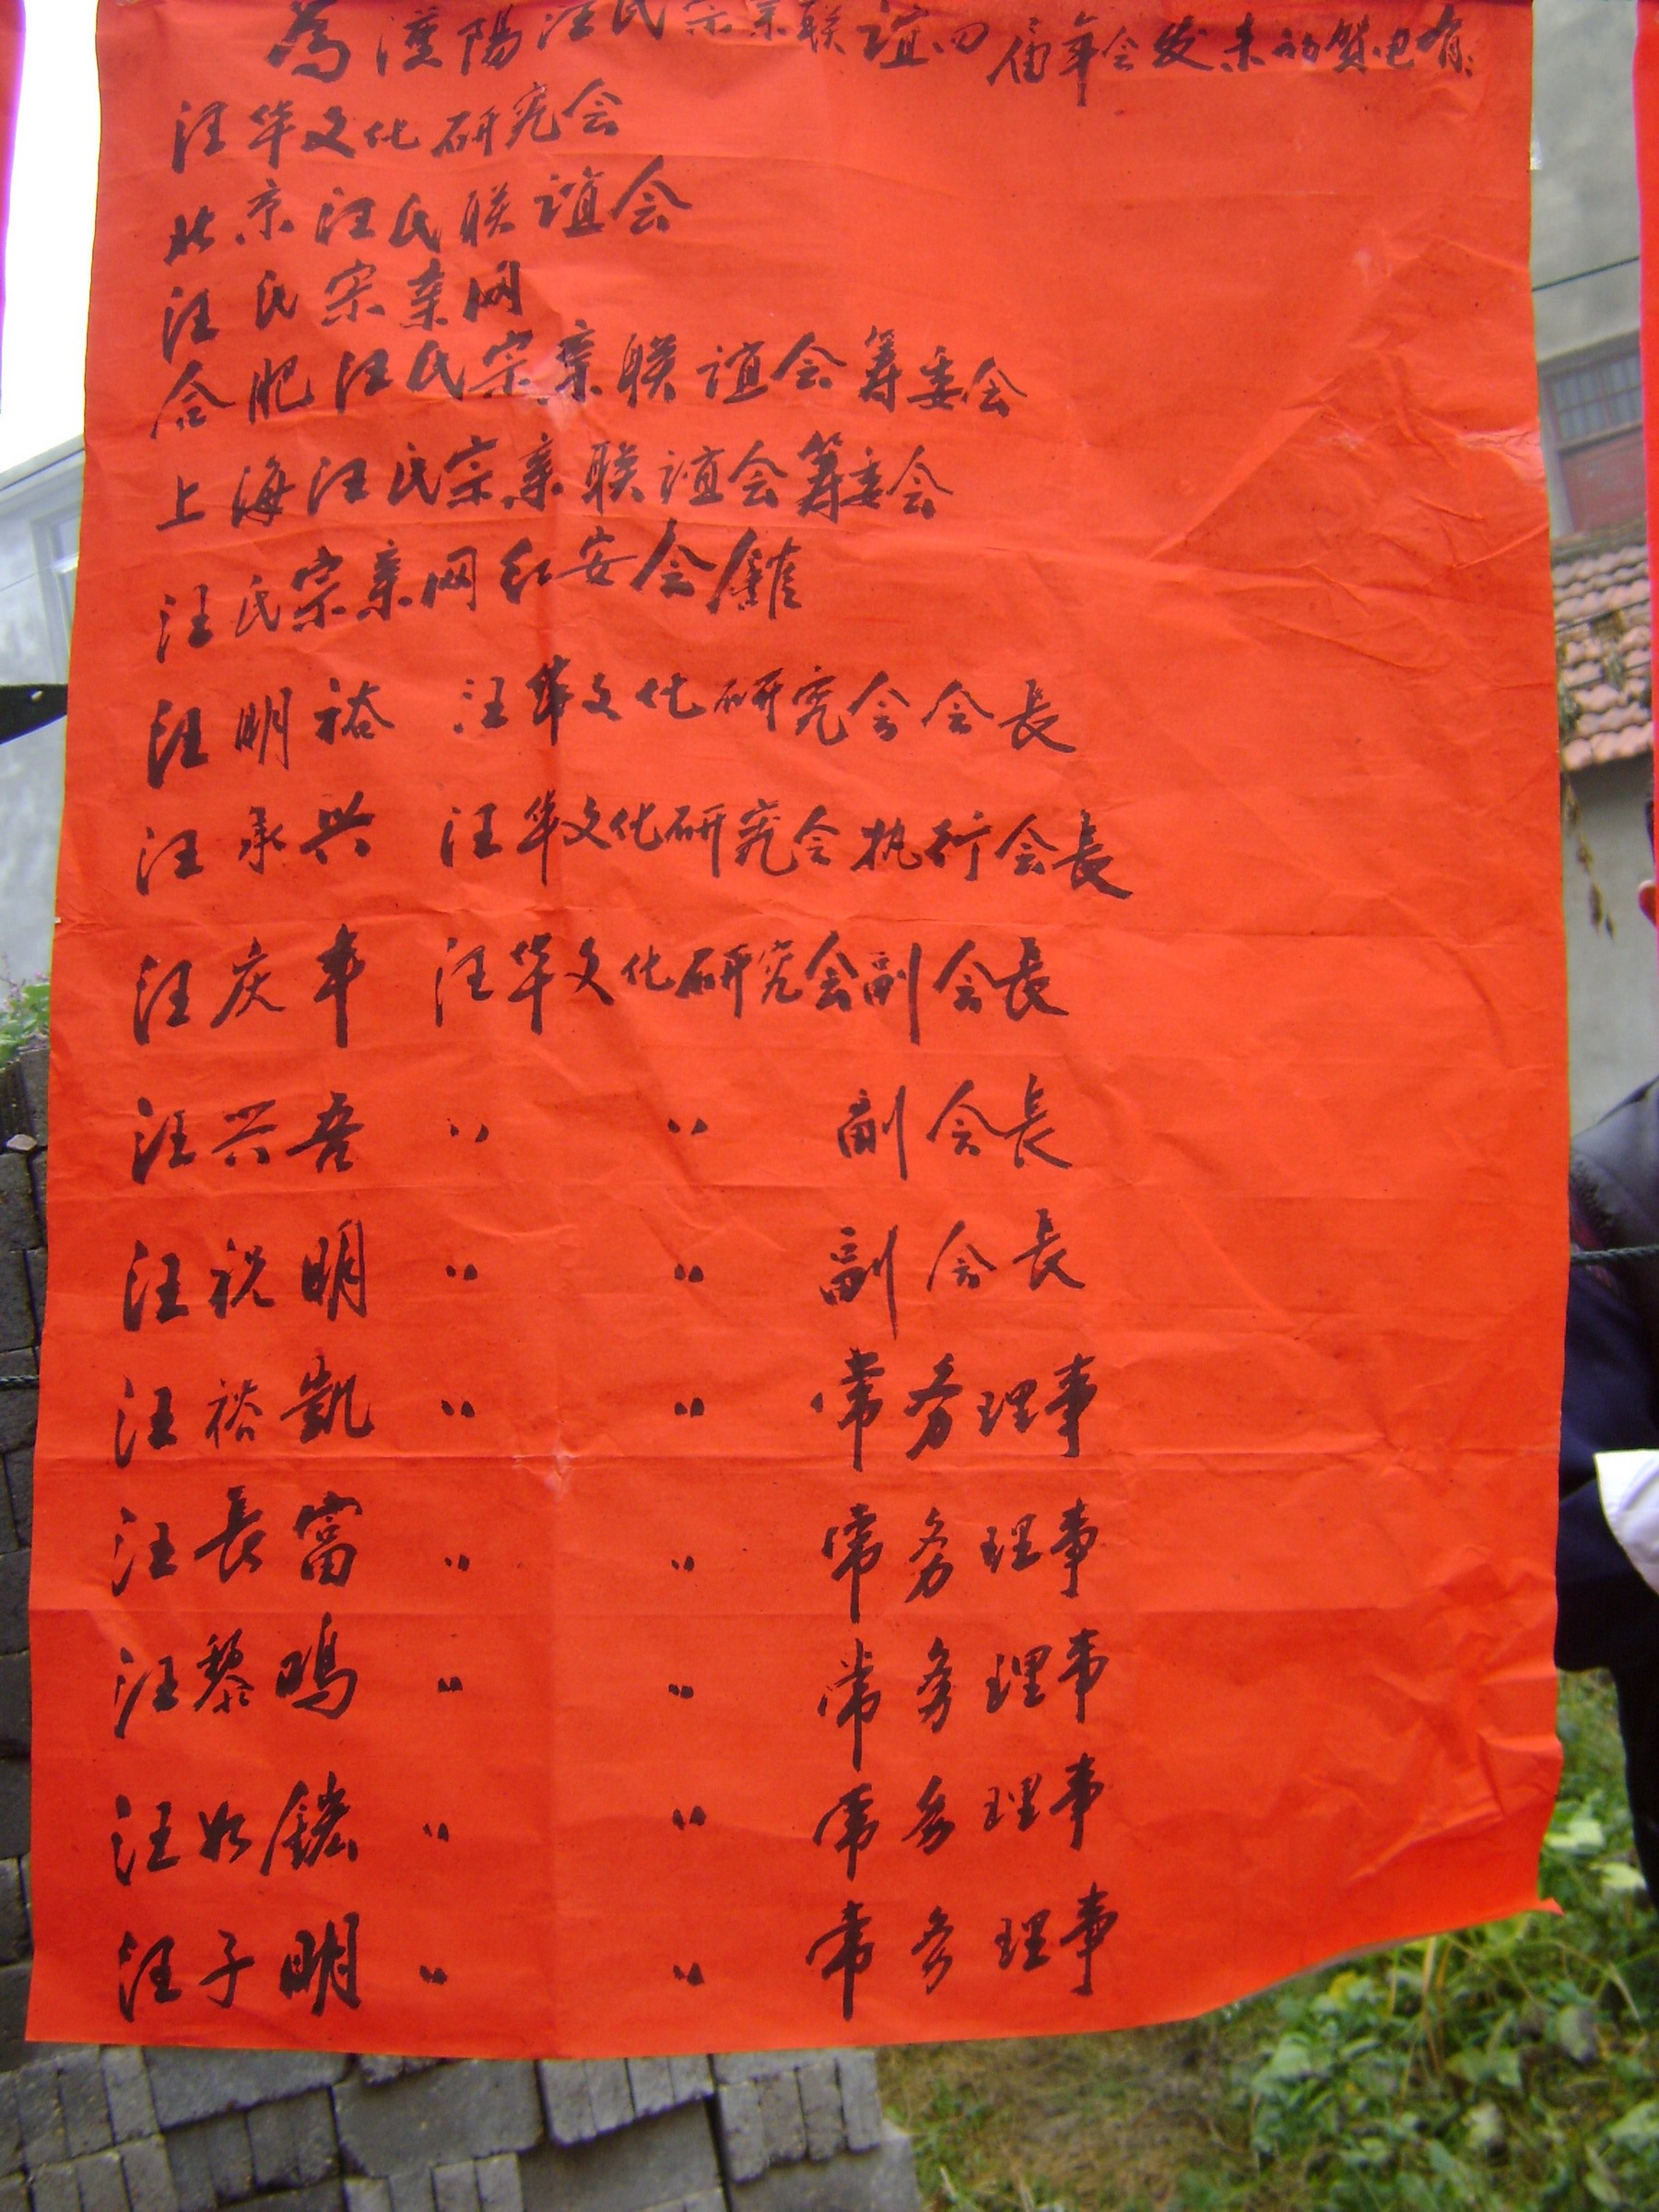 为滠阳汪氏宗亲联谊四届年会发来的贺电有:
汪华文化研究会
北京汪氏联谊会
汪氏宗亲网
合肥汪氏宗亲联谊会筹委会
上海汪氏宗亲联谊会筹委会
汪氏宗亲网红安会馆
汪明裕 汪华文化研究会会長
汪承兴 汪华文化研究会执行会長
汪庆丰 汪华文化研究会副会長
汪兴吾 〃 〃 副会長
汪祝明 〃 〃 副会長
汪裕凱 〃 〃 常务理事
汪長富 〃 〃 常务理事
汪黎鸣 〃 〃 常务理事
汪如 〃 〃 常务理事
汪子明 〃 〃 常务理事